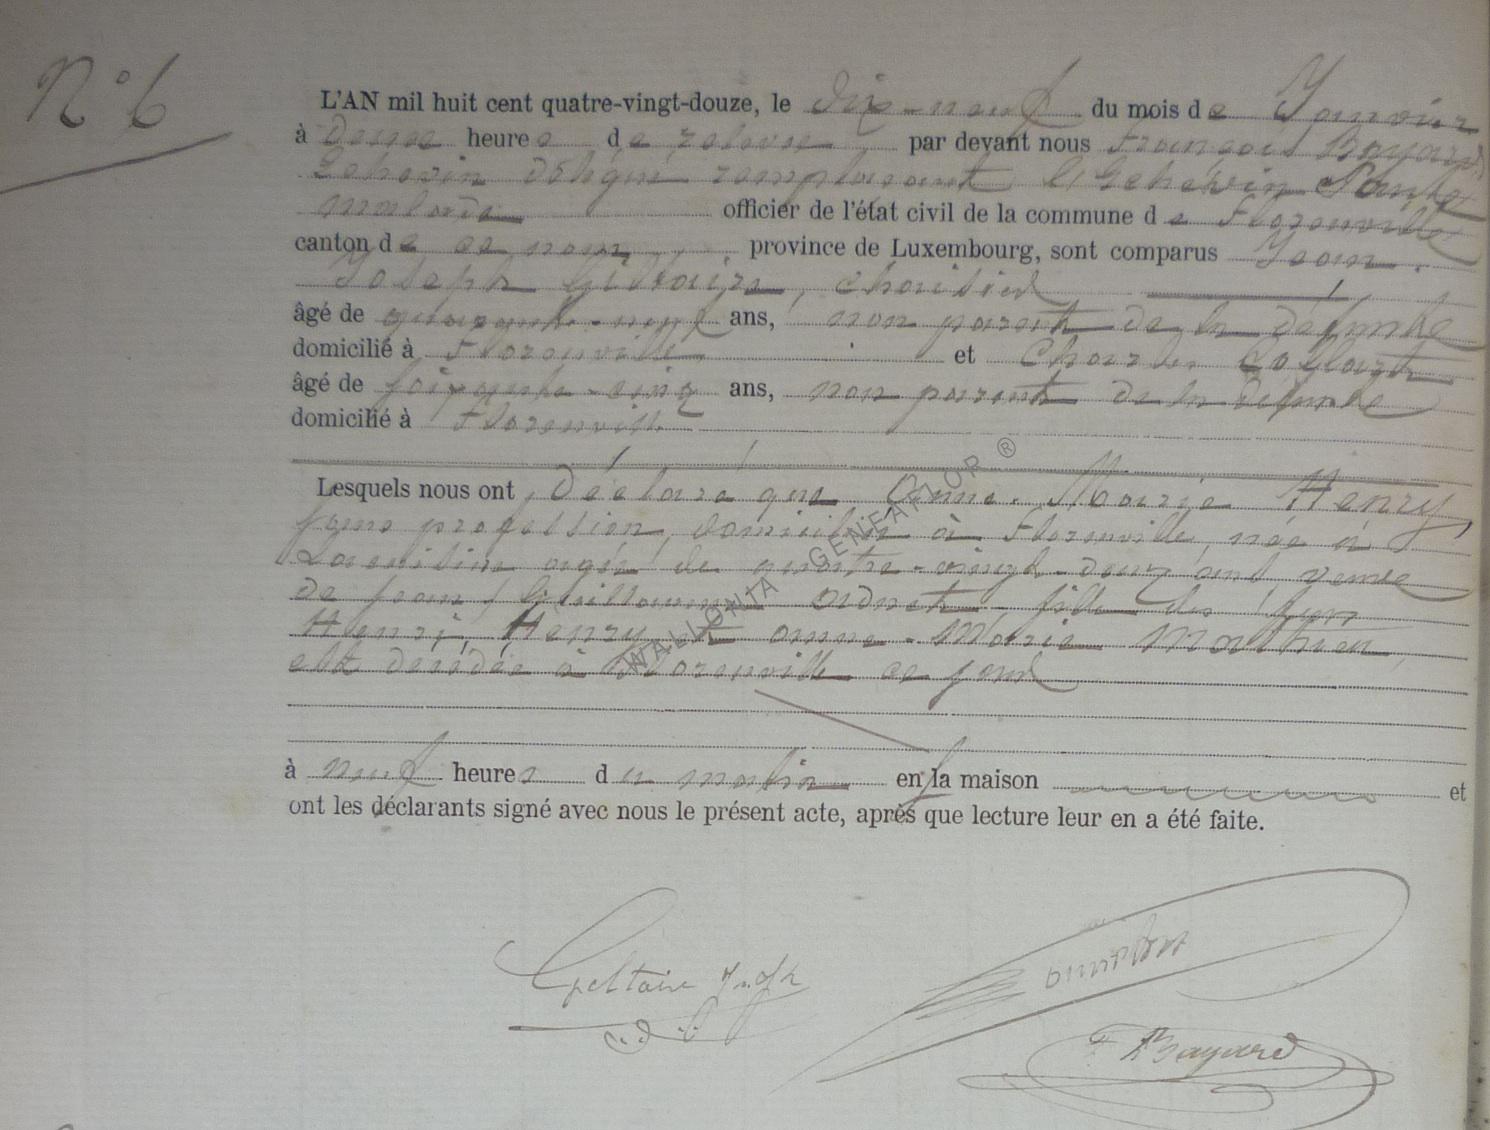 N° 6
L'AN mil huit cent quatre-vingt-douze, le dix-neuf du mois de Janvier
à deux heures de relevée par devant nous François Bayard
Echevin délégué remplaçant l'Echevin
malade officier de l'état civil de la commune de Florenville
canton de ce nom province de Luxembourg, sont comparus Jean
Joseph
âgé de quarante-neuf ans, non parent de la défunte
domicilié à Florenville et Charles Collart
âgé de soixante-cinq ans, non parent de la défunte
domicilié à Florenville
Lesquels nous ont déclaré que Anne-Marie Henry
sans profession, domicilié à Florenville, née à
agée de quatre-vingt-douze ans veuve
de Jean Guillaume Ordnet fille des feux
Henri Henry et Anne-Marie Mathieu,
est decédée à Florenville ce jourd
à neuf heures du matin en sa maison et
ont les déclarants signé avec nous le présent acte, après que lecture leur en a été faite.
WALLONIA GENEATOR ®
F Bayard